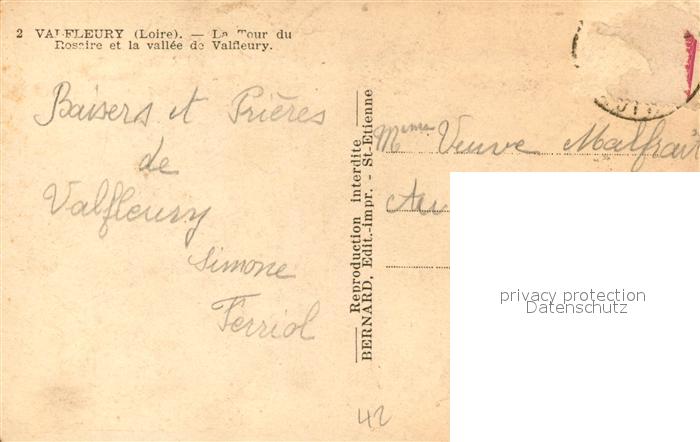 2 VALFLEURY (Loire). — La Tour du
Rosaire et la vallée de Valfleury.
Baisers et Prières
de
Valfleury
Simone
Ferriol
42
Reproduction interdite
BERNARD, Edit.-impr. - St-Etienne
Mme Veuve Malfrait
privacy protection
Datenschutz